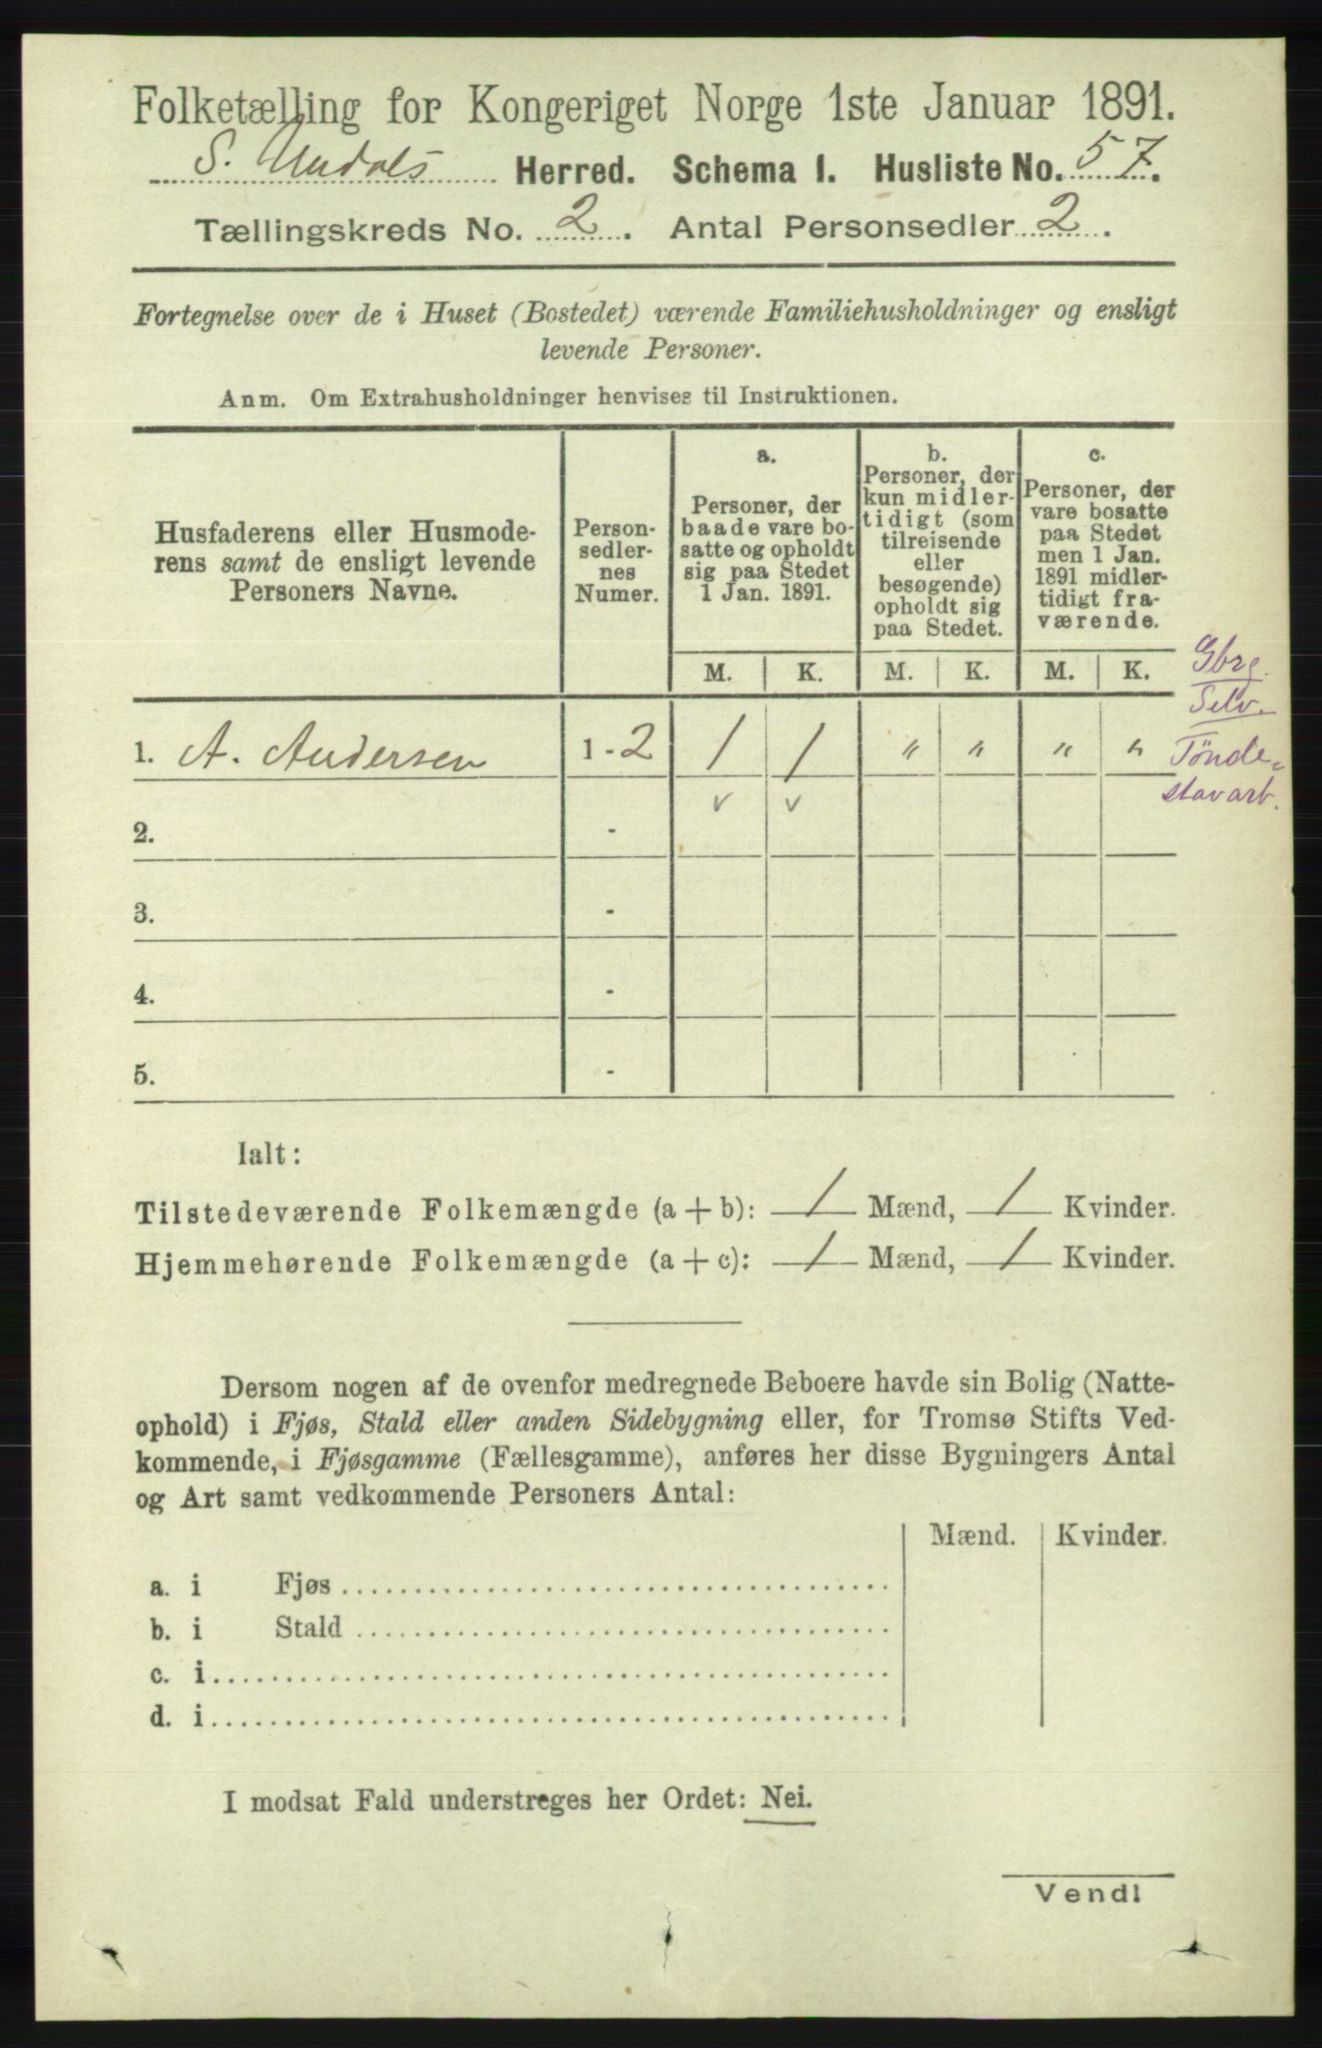 Folketælling for Kongeriget Norge 1ste Januar 1891.
S. Undals Herred. Schema 1. Husliste No. 57.
Tællingskreds No. 2. Antal Personsedler 2.
Fortegnelse over de i Huset (Bostedet) værende Familiehusholdninger og ensligt
levende Personer.
Anm. Om Extrahusholdninger henvises til Instruktionen.
Husfaderens eller Husmode-
rens samt de ensligt levende
Personers Navne.
Person-
sedler-
nes
Numer.
a.
Personer, der
baade vare bo-
satte og opholdt
sig paa Stedet
1 Jan. 1891.
b.
Personer, der
kun midler-
tidigt (som
tilreisende
eller
besøgende)
opholdt sig
paa Stedet.
c.
Personer, der
vare bosatte
paa Stedet
men 1 Jan.
1891 midler-
tidigt fra-
værende.
M. K. M. K. M. K.
Gbrg.
Selv.
1. A. Andersen 1 - 2 1 1 " " " " Tønde-
stavarb.
v v
2. -
3. -
4. -
5. -
Ialt:
Tilstedeværende Folkemængde (a + b): 1 Mænd, 1 Kvinder.
Hjemmehørende Folkemængde (a + c): 1 Mænd, 1 Kvinder.
Dersom nogen af de ovenfor medregnede Beboere havde sin Bolig (Natte-
ophold) i Fjøs, Stald eller anden Sidebygning eller, for Tromsø Stifts Ved-
kommende, i Fjøsgamme (Fællesgamme), anføres her disse Bygningers Antal
og Art samt vedkommende Personers Antal:
Mænd. Kvinder.
a. i Fjøs
b. i Stald
c. i
d. i
I modsat Fald understreges her Ordet: Nei.
Vend!